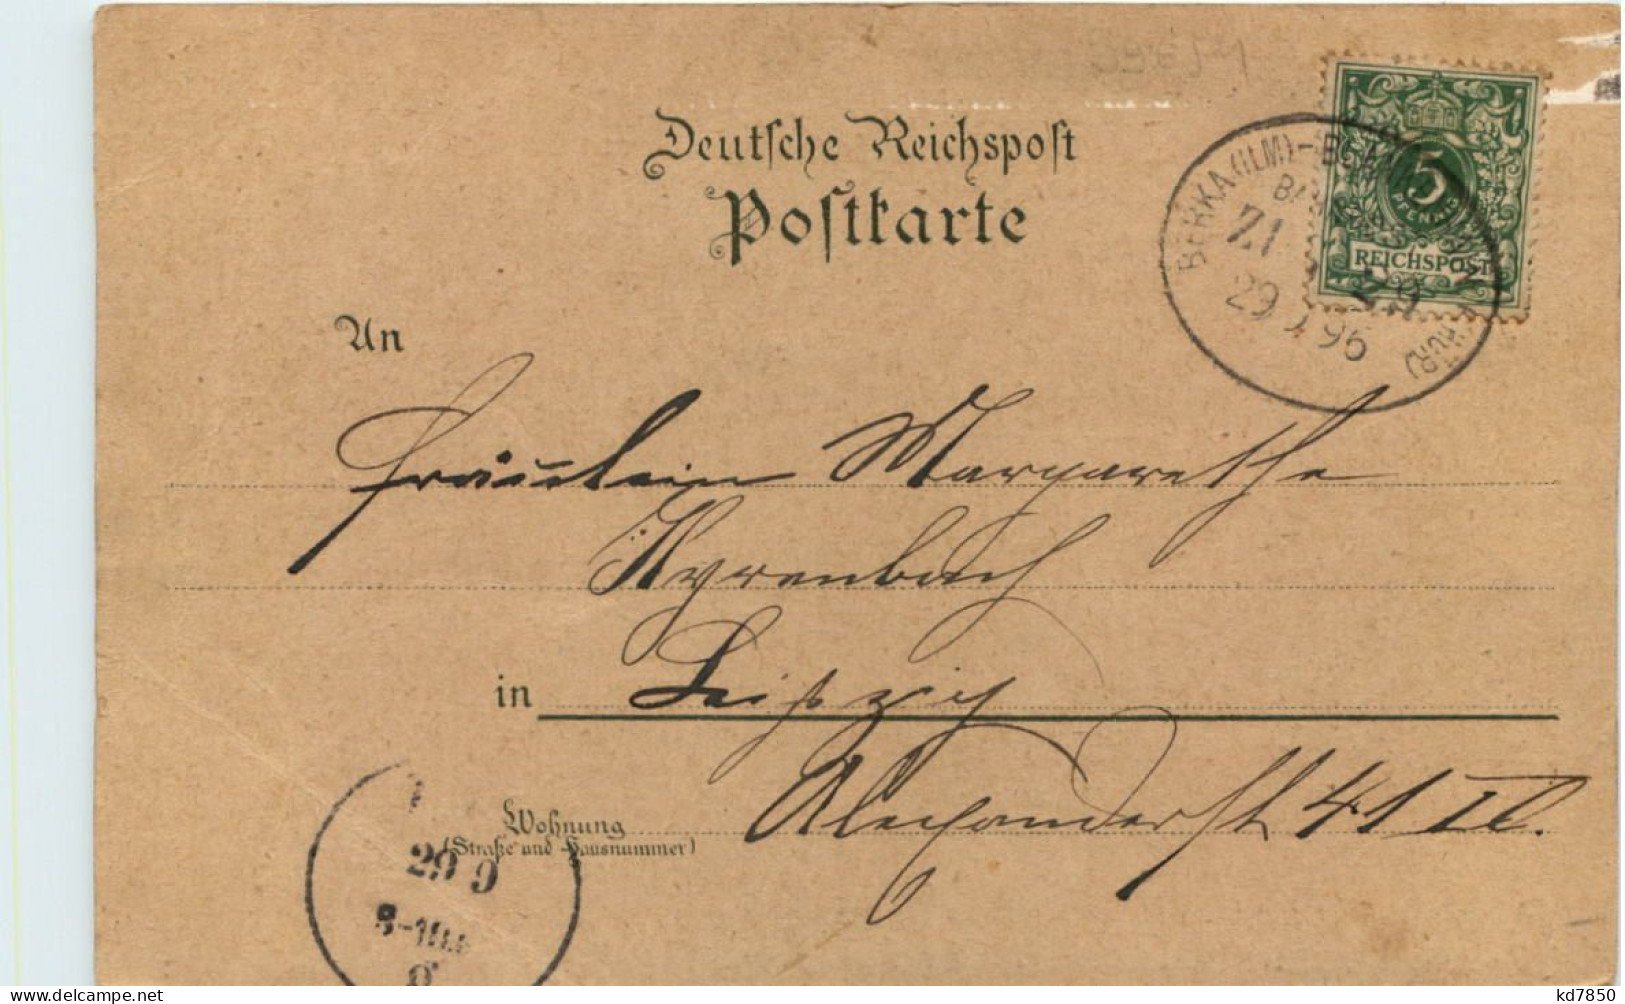 Deutsche Reichspost
Postkarte
5
PFENNIG
REICHSPOST
BERKA (ILM) -
29 9 96
An
Fräulein Margarethe
in Leipzig
Wohnung
(Straße und Hausnummer)
Alexanderst 41 II.
29 9
8-
kd7850